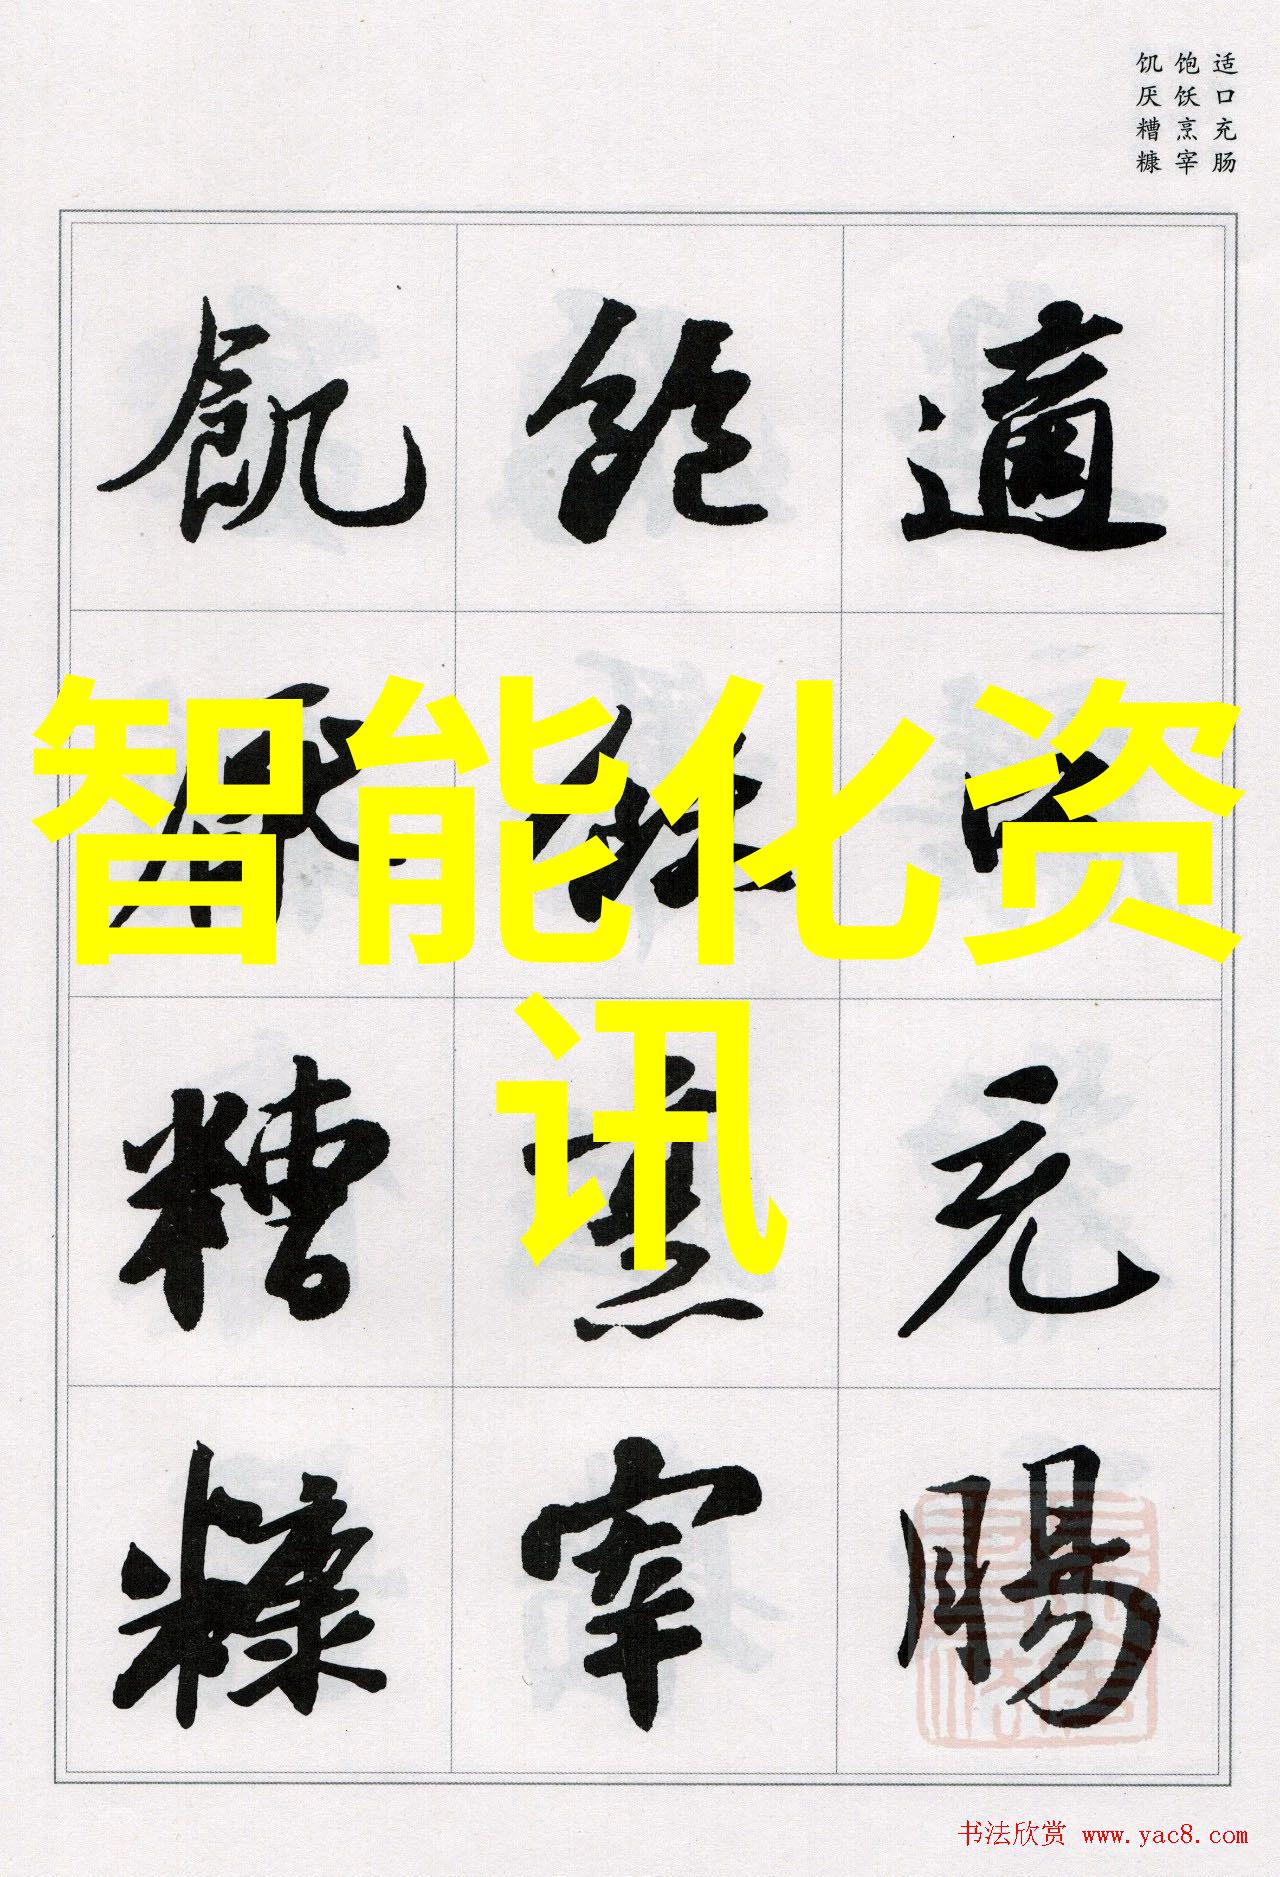 适口充肠
饱饫烹宰
饥厌糟糠
適口充腸
飽飫烹宰
飢厭糟糠
智能化资
讯
书法欣赏 www.yac8.com